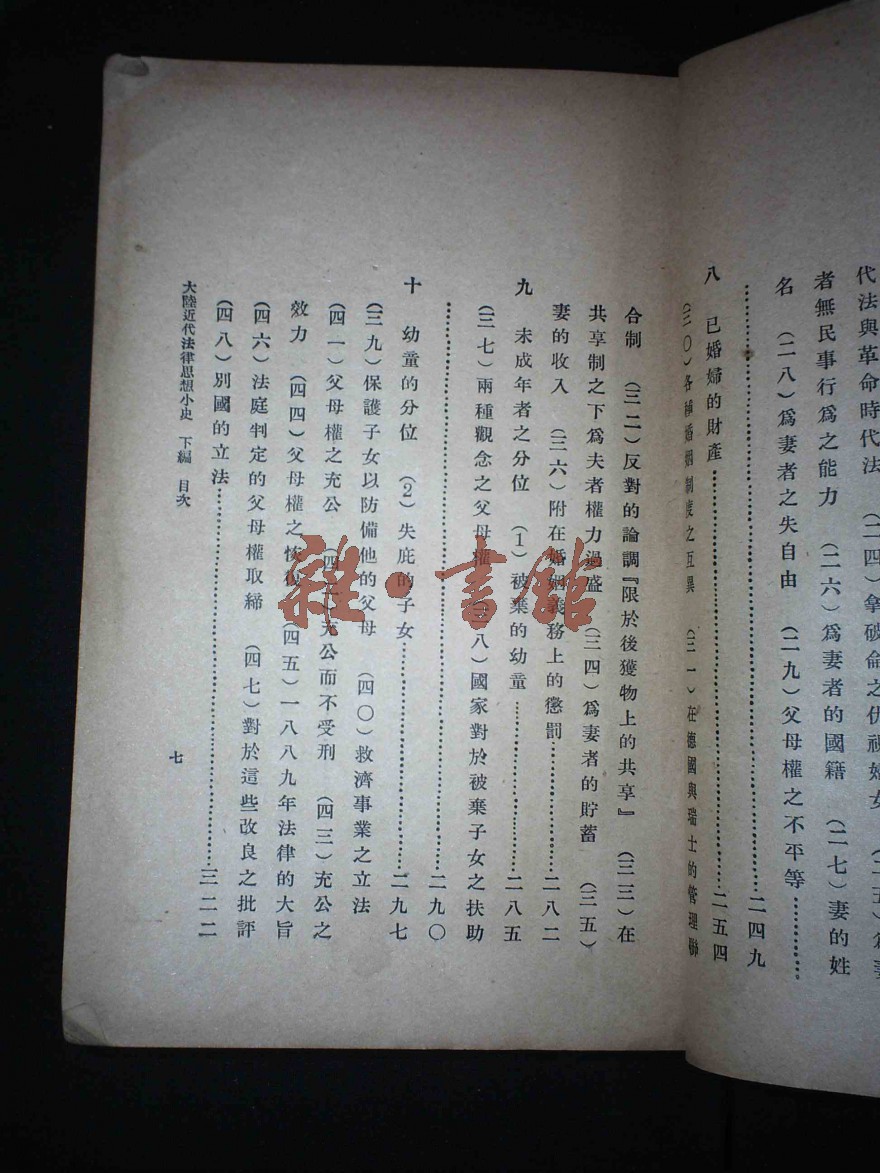 代法與革命時代法 (二四)拿破侖之仇視婦女 (二五)爲妻
者無民事行爲之能力 (二六)爲妻者的國籍 (二七)妻的姓
名 (二八)爲妻者之失自由 (二九)父母權之不平等…………
……………………二四九
八 已婚婦的財產……………………二五四
(三〇)各種婚姻制度之互異 (三一)在德國與瑞士的管理聯
合制 (三二)反對的論調『限於後獲物上的共享』 (三三)在
共享制之下爲夫者權力過盛 (三四)爲妻者的貯蓄 (三五)
妻的收入 (三六)附在婚姻義務上的懲罰……………………二八二
九 未成年者之分位 (1)被棄的幼童……………………二八五
(三七)兩種觀念之父母權 (三八)國家對於被棄子女之扶助
……………………二九〇
十 幼童的分位 (2)失庇的子女……………………二九七
(三九)保護子女以防備他的父母 (四〇)救濟事業之立法
(四一)父母權之充公 (四二)充公而不受刑 (四三)充公之
效力 (四四)父母權之恢復 (四五)一八八九年法律的大旨
(四六)法庭判定的父母權取締 (四七)對於這些改良之批評
(四八)別國的立法……………………三二二
大陸近代法律思想小史 下編 目次
七
雜·書館